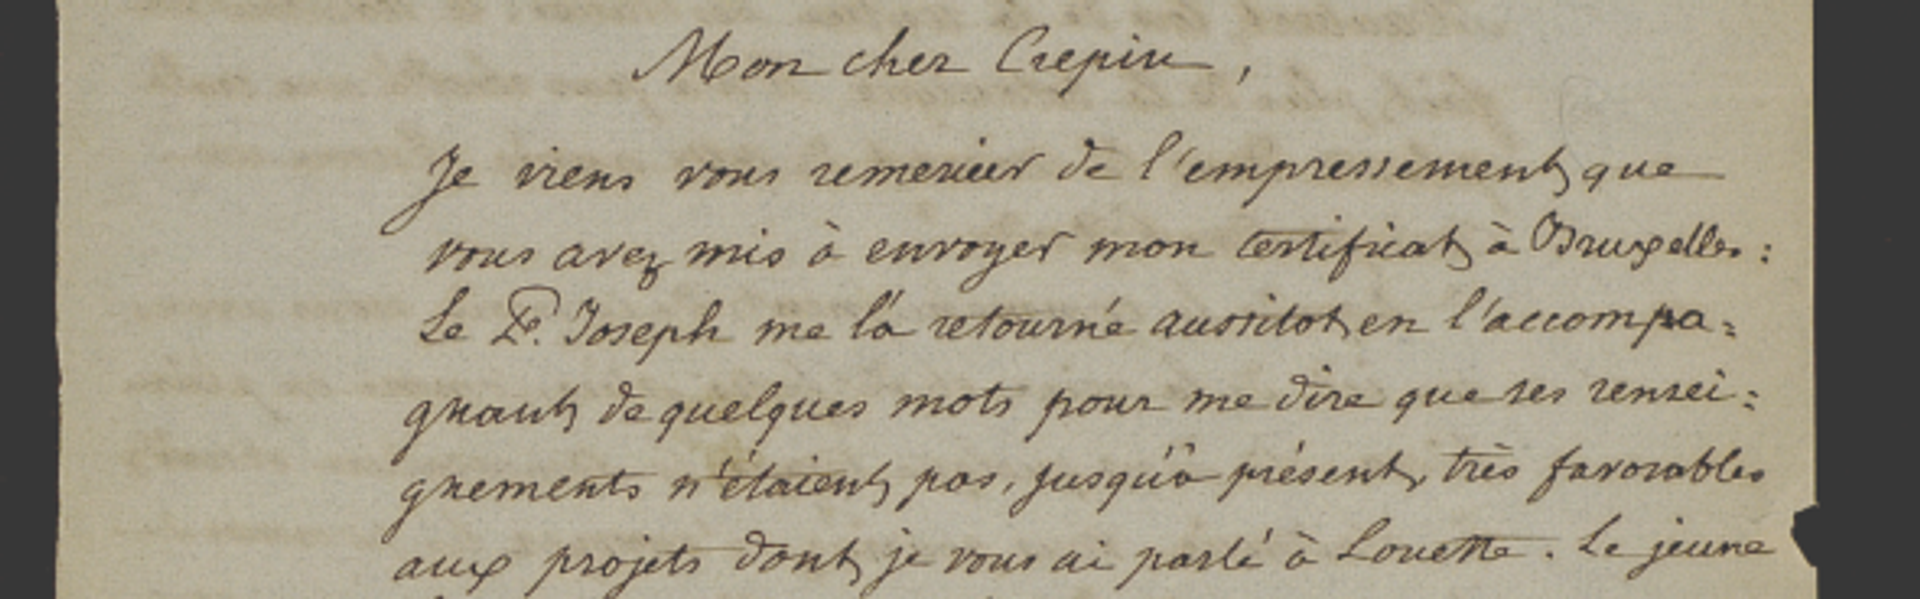 Mon cher Crepin,
Je viens vous remercier de l'empressement que
vous avez mis à envoyer mon certificat à Bruxelles:
Le Joseph me l'a retourné aussitot en l'accompa:
gnant de quelques mots pour me dire que ses rensei:
gnements n'étaient pas, jusqu'à présent, très favorables
aux projets dont je vous ai parlé à Louette. Le jeune